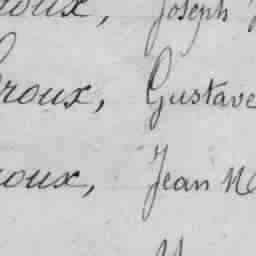 roux, Joseph
roux, Gustave
roux, Jean